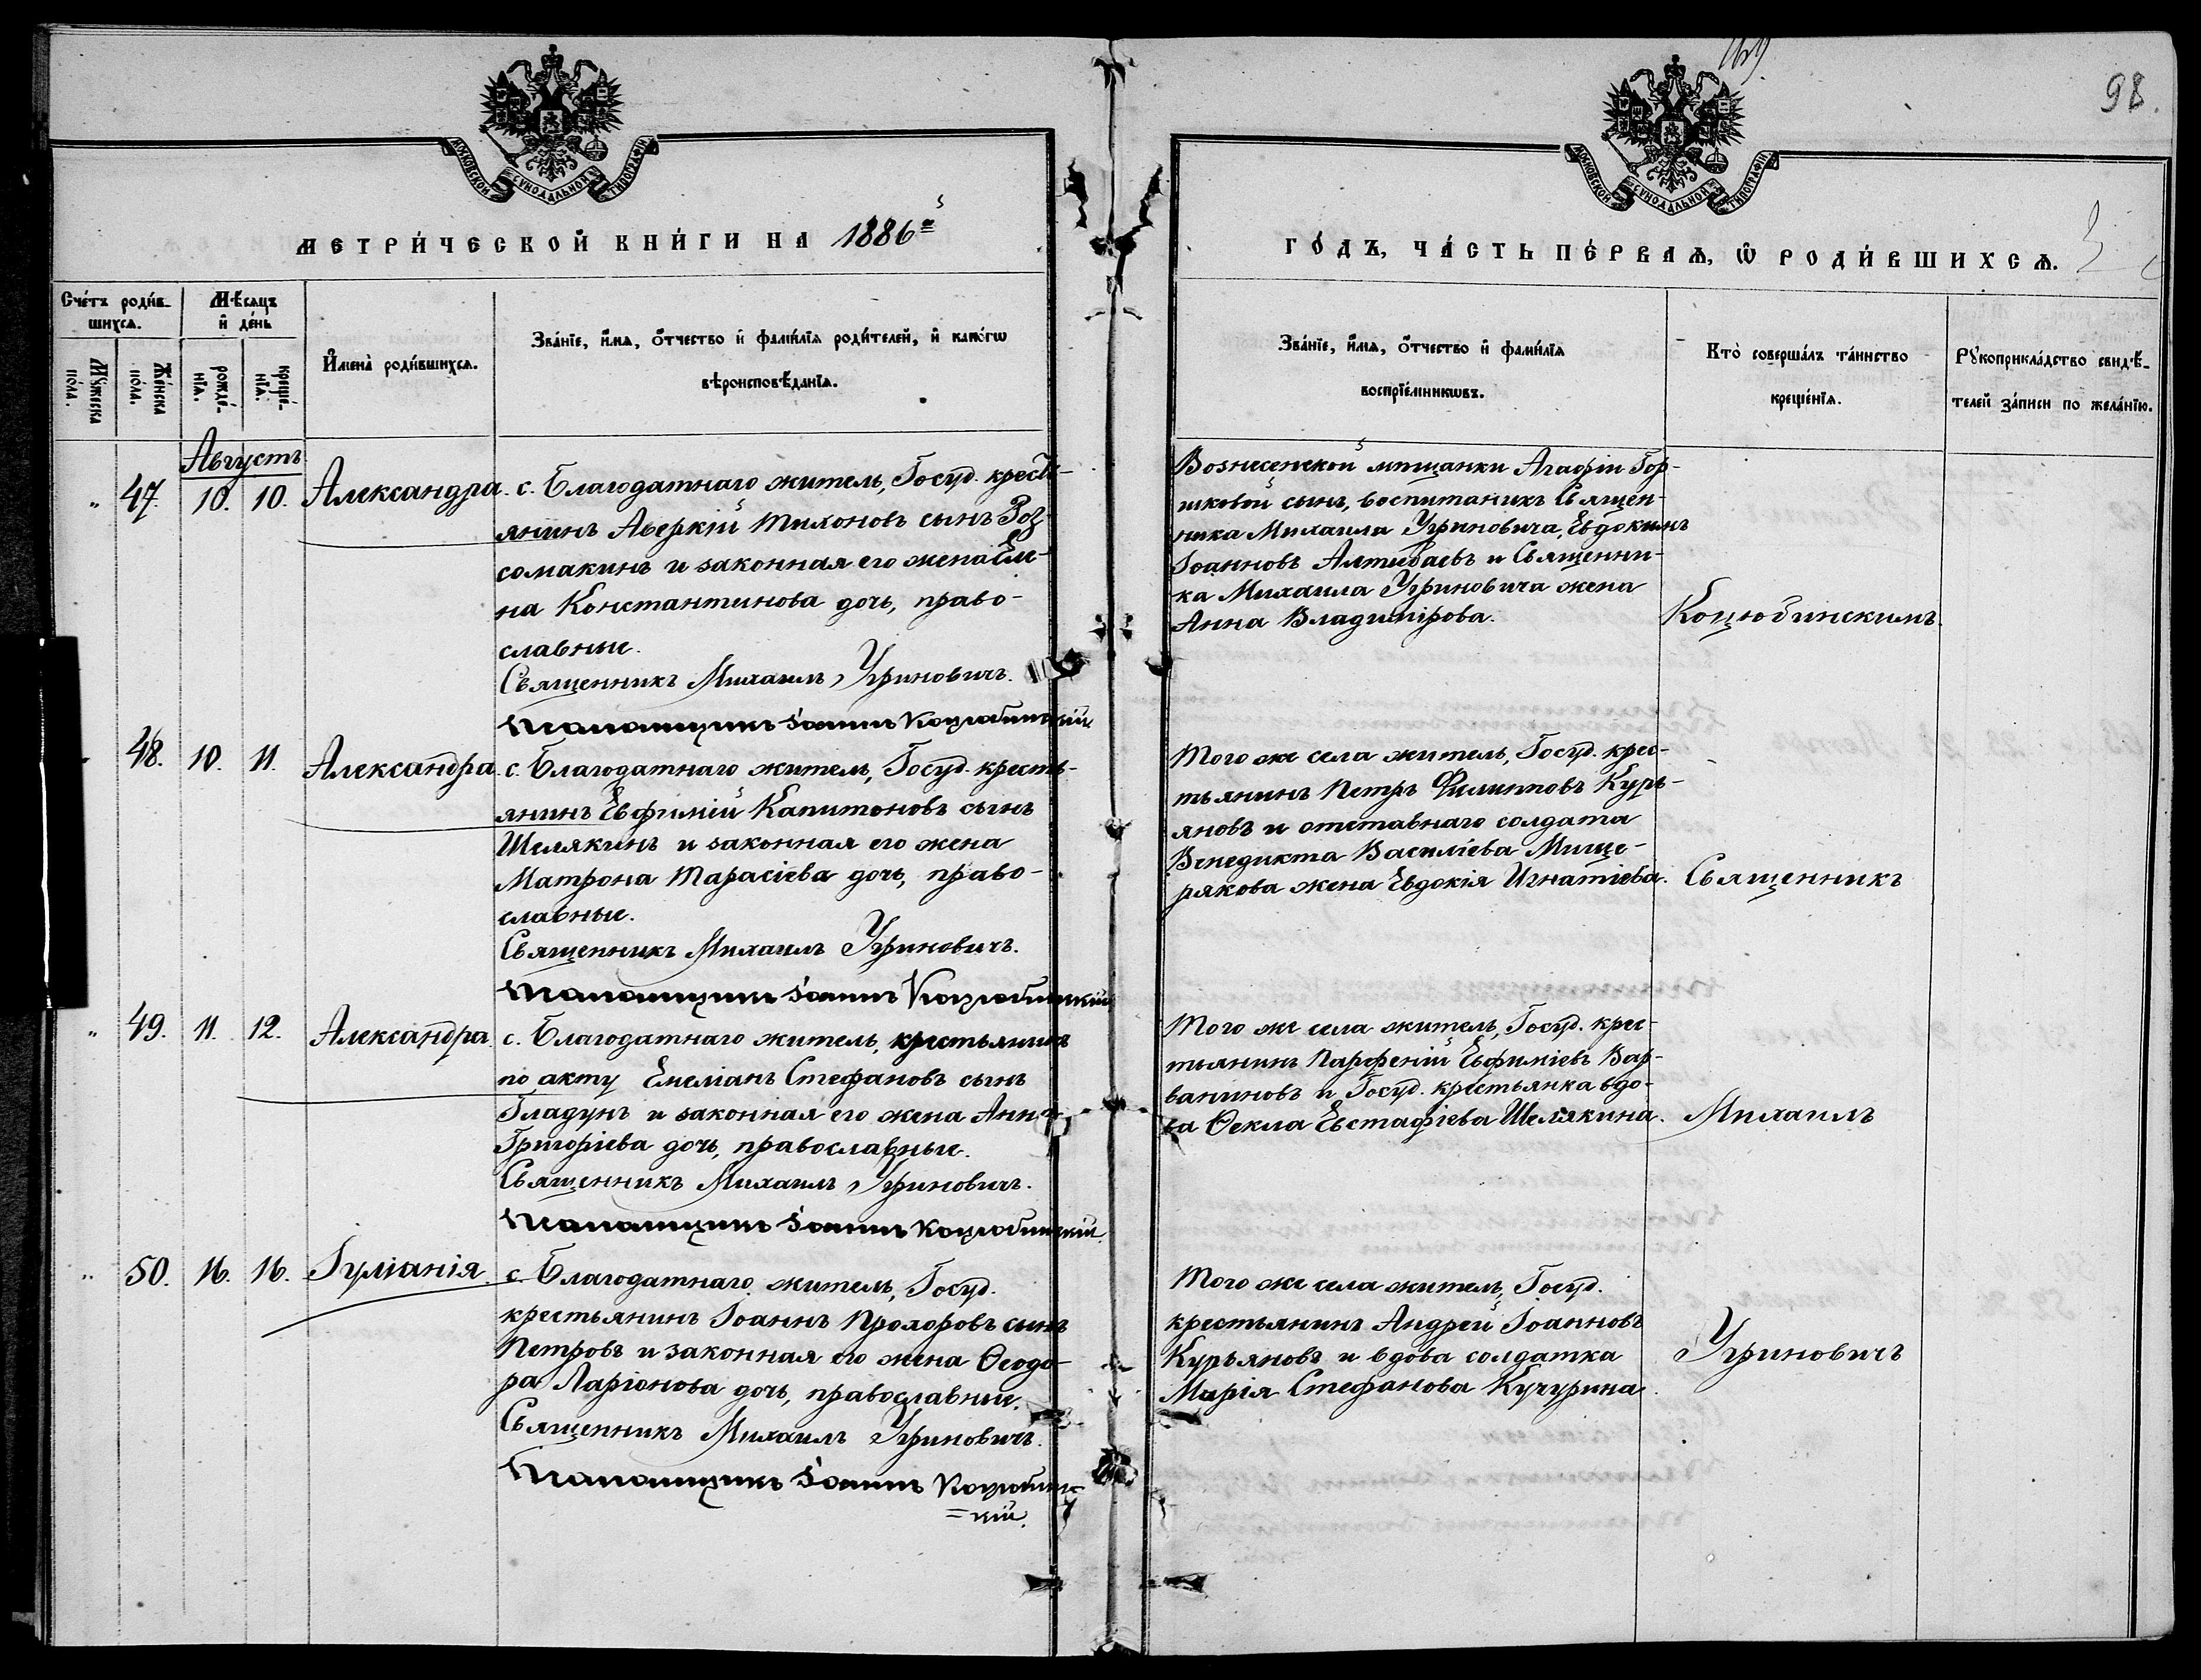 98.
МОСКОВСКОЙ СѴНОДАЛЬНОЙ ТИПОГРАФІИ
МОСКОВСКОЙ СѴНОДАЛЬНОЙ ТИПОГРАФІИ
МЕТРИ́ЧЕСКОЙ КНИ́ГИ НА 1886й
ГО́ДЪ, ЧА́СТЬ ПЕ́РВАѦ, Ѡ РОДИ́ВШИХСѦ.
Сче́тъ роди́в-
шихсѧ.
Мѣ́сѧцъ
и҆ де́нь
Мꙋ́жеска
по́ла.
Же́нска
по́ла.
рожде́-
нїѧ.
креще́-
нїѧ.
И҆мена̀ роди́вшихсѧ.
Зва́нїе, и҆́мѧ, о҆́тчество и҆ фами́лїѧ роди́телей, и҆ како́гѡ
вѣроисповѣ́данїѧ.
Зва́нїе, и҆́мѧ, о҆́тчество и҆ фами́лїѧ
воспрїе́мникѡвъ.
Кто̀ соверша́лъ та́инство
креще́нїѧ.
Рꙋкоприкла́дство свидѣ́-
телей за́писи по жела́нїю.
Августъ
„ 47. 10. 10. Александра.
с. Благодатнаго житель, Госуд. кресть-
янинъ Аверкій Тихоновъ сынъ Роз-
сомакинъ и законная его жена Еле-
на Константинова дочь, право-
славные.
Священникъ Михаилъ Угриновичъ.
Паламщикъ Іоаннъ Коцюбинскій
Вознесенской мѣщанки Агафіи Гор-
шковой сынъ, воспитаникъ Священ-
ника Михаила Угриновича, Евдокимъ
Іоанновъ Алтибаевъ и Священни-
ка Михаила Угриновича жена
Анна Владимірова.
Коцюбинскимъ.
48. 10. 11. Александра.
с. Благодатнаго житель, Госуд. кресть-
янинъ Евфимій Капитоновъ сынъ
Шелякинъ и законная его жена
Матрона Тарасіева дочь, право-
славные.
Священникъ Михаилъ Угриновичъ.
Паламщикъ Іоаннъ Коцюбинскій
Того же села житель, Госуд. крес-
тьянинъ Петръ Филипповъ Курь-
яновъ и отставнаго солдата
Венедикта Василіева Мище-
рякова жена Евдокія Игнатіева.
Священникъ
„ 49. 11. 12. Александра.
с. Благодатнаго житель, крестьянинъ
по акту Емеліанъ Стефановъ сынъ
Гладунъ и законная его жена Анна
Григоріева дочь, православные.
Священникъ Михаилъ Угриновичъ.
Паламщикъ Іоаннъ Коцюбинскій.
Того же села житель, Госуд. крес-
тьянинъ Парфеній Евфиміевъ Вар-
ваниновъ и Госуд. крестьянка вдо-
ва Ѳекла Евстафіева Шелякина.
Михаилъ
„ 50. 16. 16. Іуліанія.
с. Благодатнаго житель, Госуд.
крестьянинъ Іоаннъ Прохоровъ сынъ
Петровъ и законная его жена Ѳеодо-
ра Ларіонова дочь, православные.
Священникъ Михаилъ Угриновичъ.
Паламщикъ Іоаннъ Коцюбинс-
=кій.
Того же села житель, Госуд.
крестьянинъ Андрей Іоанновъ
Курьяновъ и вдова солдатка
Марія Стефанова Кучурина.
Угриновичъ